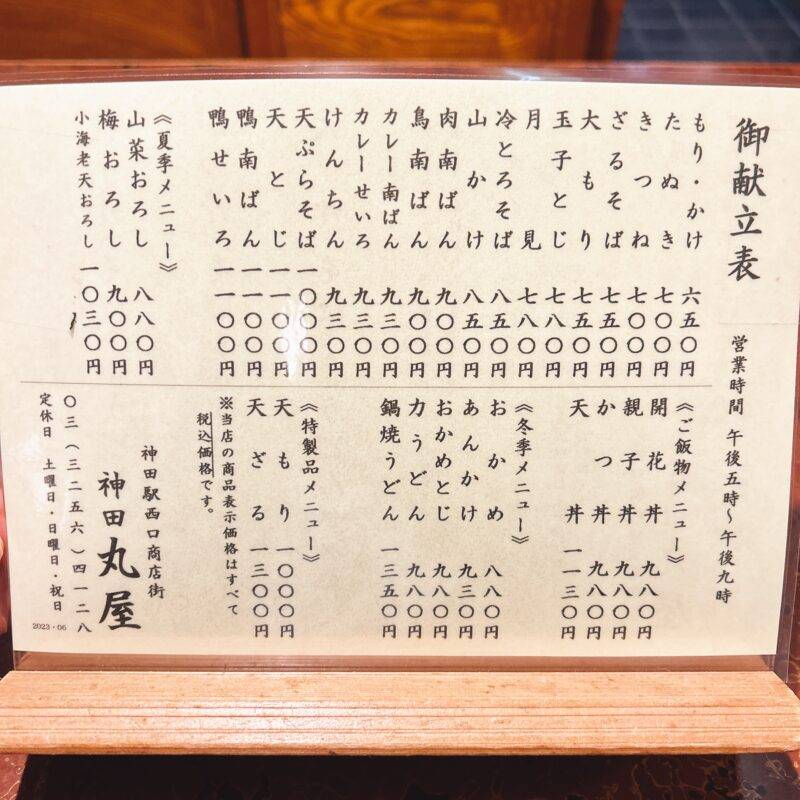 御献立表
営業時間 午後五時〜午後九時
もり・かけ 六五〇円
たぬき 七〇〇円
きつね 七〇〇円
ざるそば 七五〇円
大もり 七五〇円
玉子とじ 七一〇円
月見 七八〇円
冷とろそば 八五〇円
山かけ 八五〇円
肉南ばん 九〇〇円
鳥南ばん 九〇〇円
カレー南ばん 九三〇円
カレーせいろ 九三〇円
けんちん 九三〇円
天ぷらそば 一〇〇〇円
天とじ 一一〇〇円
鴨南ばん 一一〇〇円
鴨せいろ 一一〇〇円
《夏季メニュー》
山菜おろし 八八〇円
梅おろし 九〇〇円
小海老天おろし 一〇三〇円
《ご飯物メニュー》
開花丼 九八〇円
親子丼 九八〇円
かつ丼 九八〇円
天丼 一一三〇円
《冬季メニュー》
おかめ 八八〇円
あんかけ 九三〇円
おかめとじ 九八〇円
力うどん 九八〇円
鍋焼うどん 一三五〇円
《特製品メニュー》
天もり 一〇〇〇円
天ざる 一三〇〇円
※当店の商品表示価格はすべて
税込価格です。
神田駅西口商店街
神田 丸屋
〇三(三二五六)四一二八
定休日 土曜日・日曜日・祝日
2023・06